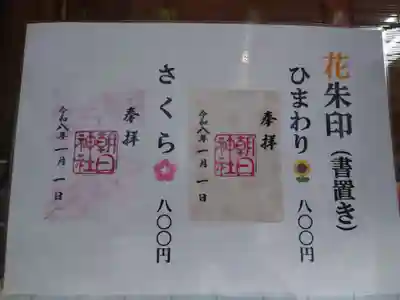 花朱印(書置き)
ひまわり🌻 八〇〇円
奉拝
朝日神社
令和八年 一月 一日
さくら🌸 八〇〇円
奉拝
朝日神社
令和八年 一月 一日